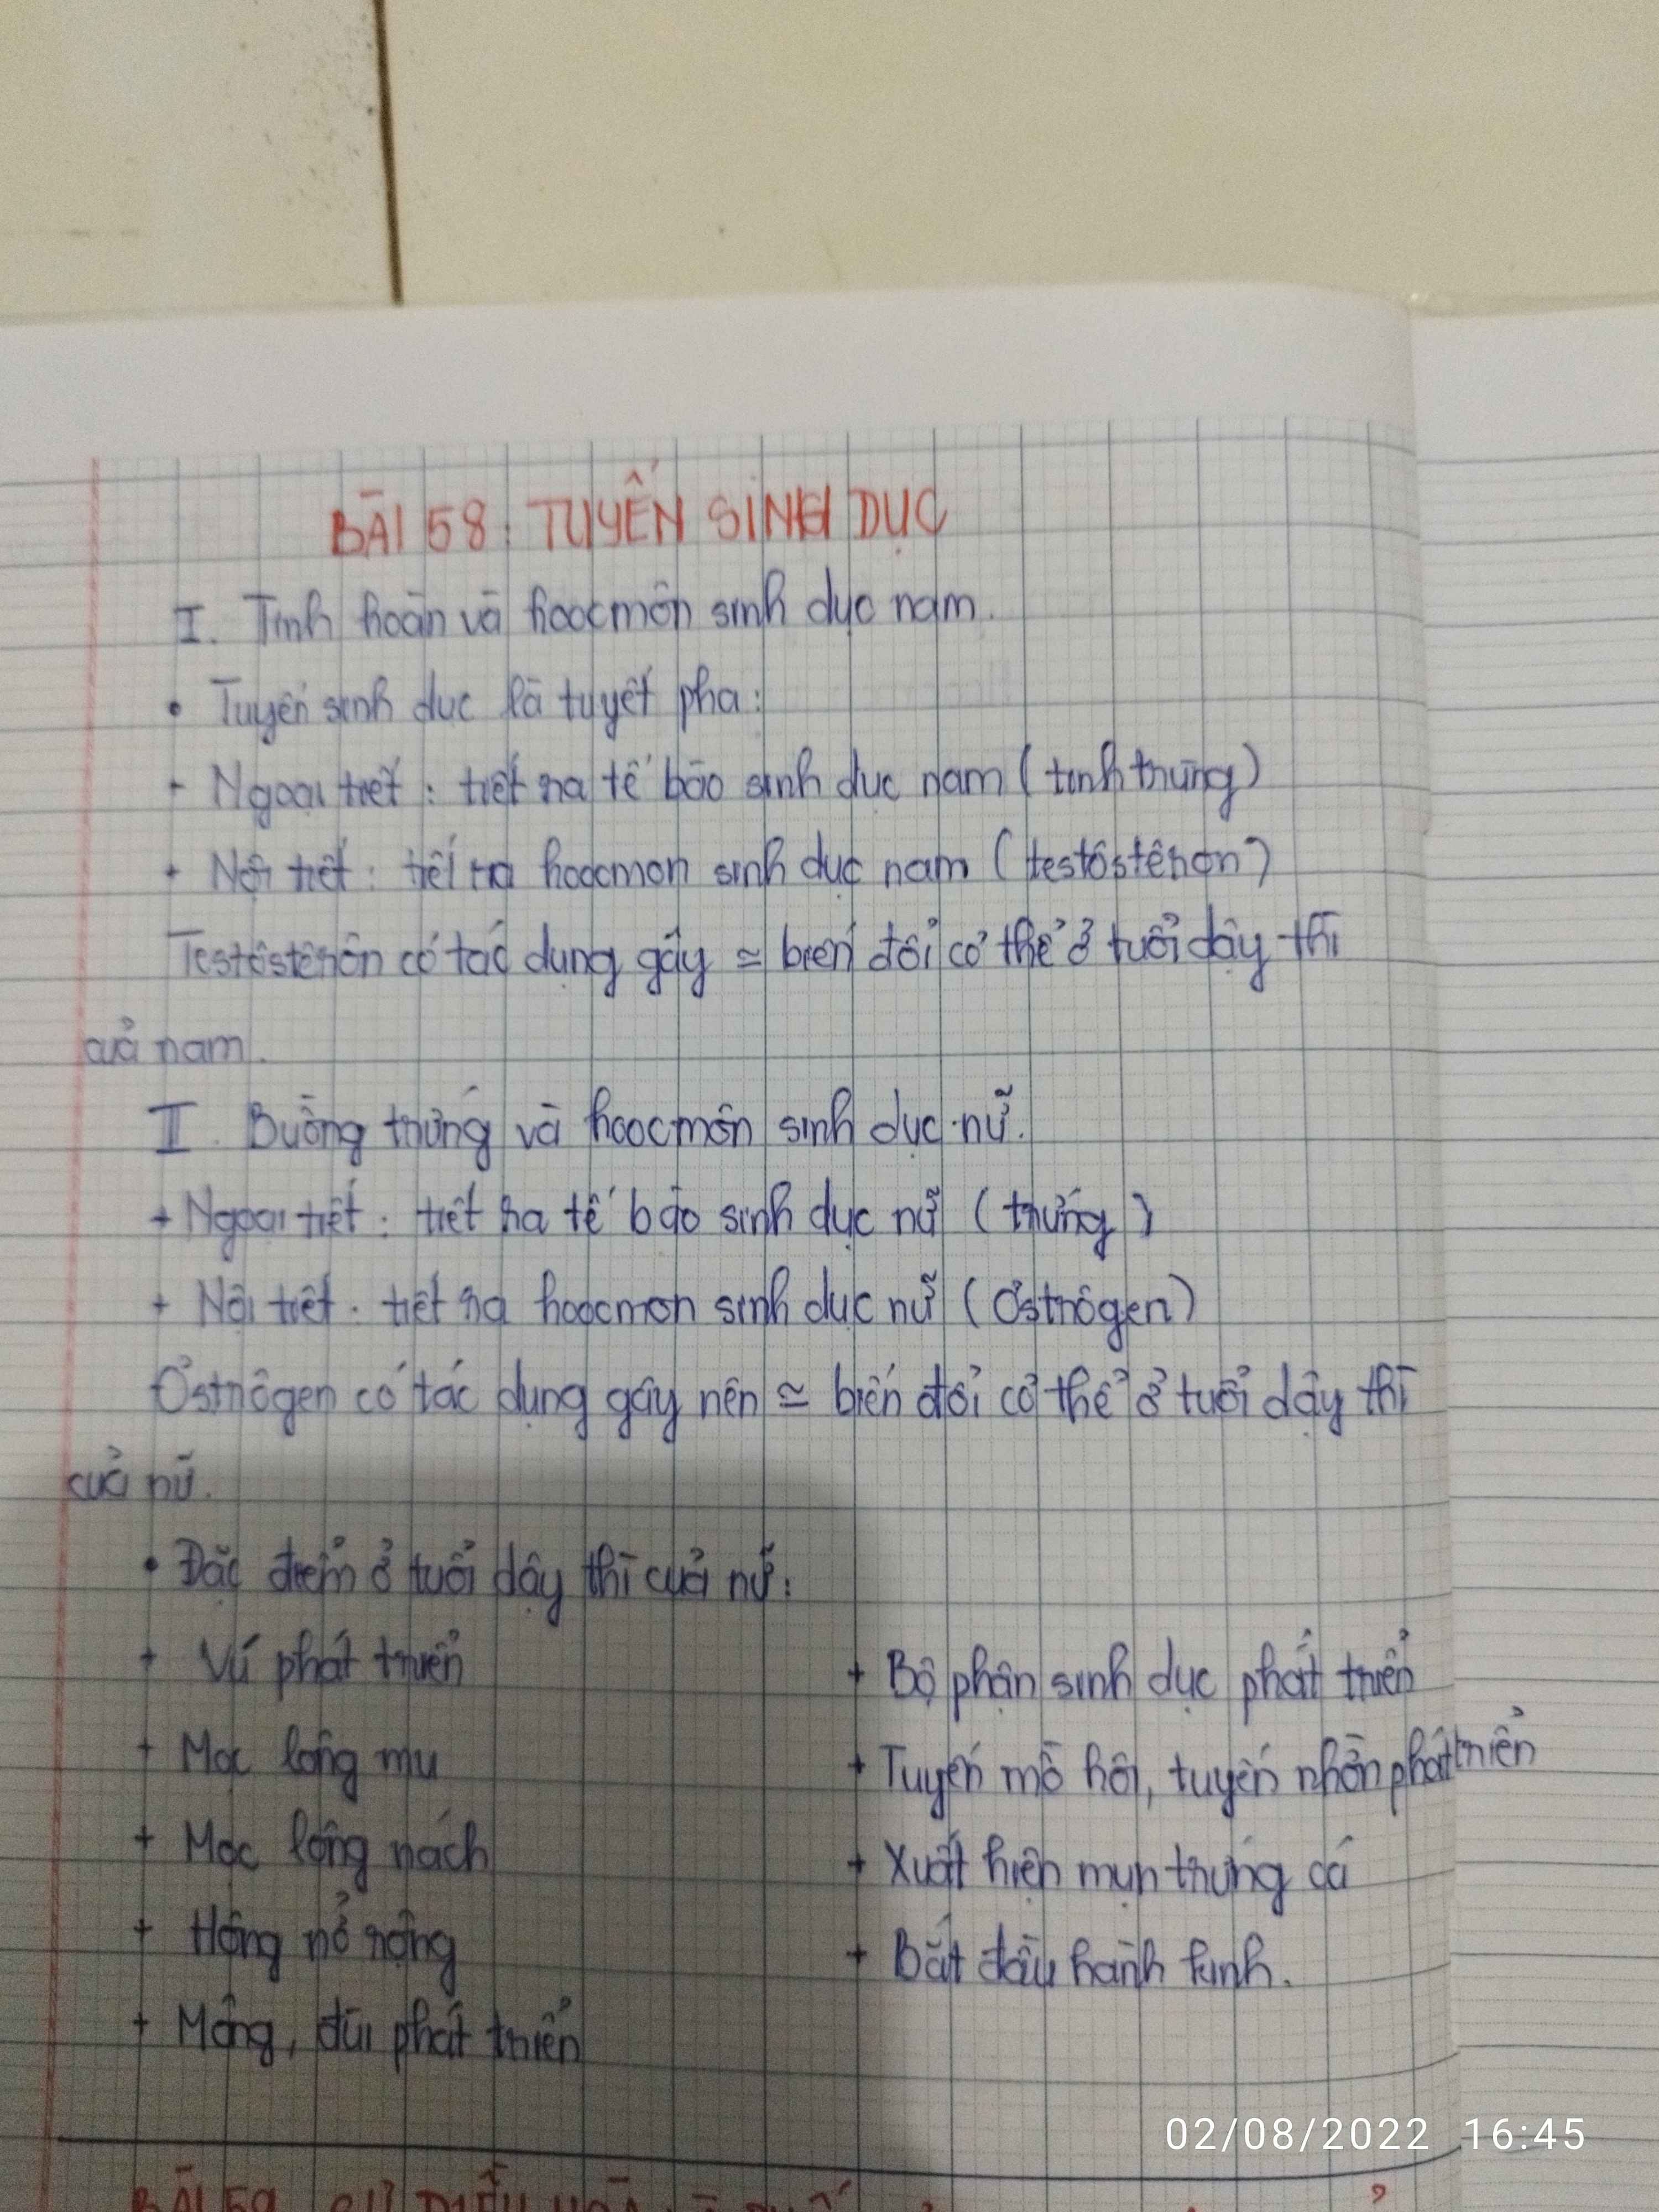 BÀI 58: TUYẾN SINH DỤC
I. Tinh hoàn và hoocmôn sinh dục nam.
• Tuyến sinh dục là tuyết pha:
+ Ngoại tiết: tiết ra tế bào sinh dục nam (tinh trùng)
+ Nội tiết: tiết ra hoocmon sinh dục nam (testôstêrơn)
Testôstêrôn có tác dụng gây ≃ biến đổi cơ thể ở tuổi dậy thì
của nam.
II. Buồng trứng và hoocmôn sinh dục nữ.
+ Ngoại tiết: tiết ra tế bào sinh dục nữ (trứng)
+ Nội tiết: tiết ra hoocmon sinh dục nữ (Ơstrôgen)
Ơstrôgen có tác dụng gây nên ≃ biến đổi cơ thể ở tuổi dậy thì
của nữ.
• Đặc điểm ở tuổi dậy thì của nữ:
+ Vú phát triển
+ Mọc lông mu
+ Mọc lông nách
+ Hông nở rộng
+ Mông, đùi phát triển
+ Bộ phận sinh dục phát triển
+ Tuyến mồ hôi, tuyến nhờn phát triển
+ Xuất hiện mụn trứng cá
+ Bắt đầu hành kinh.
02/08/2022 16:45
BÀI 59